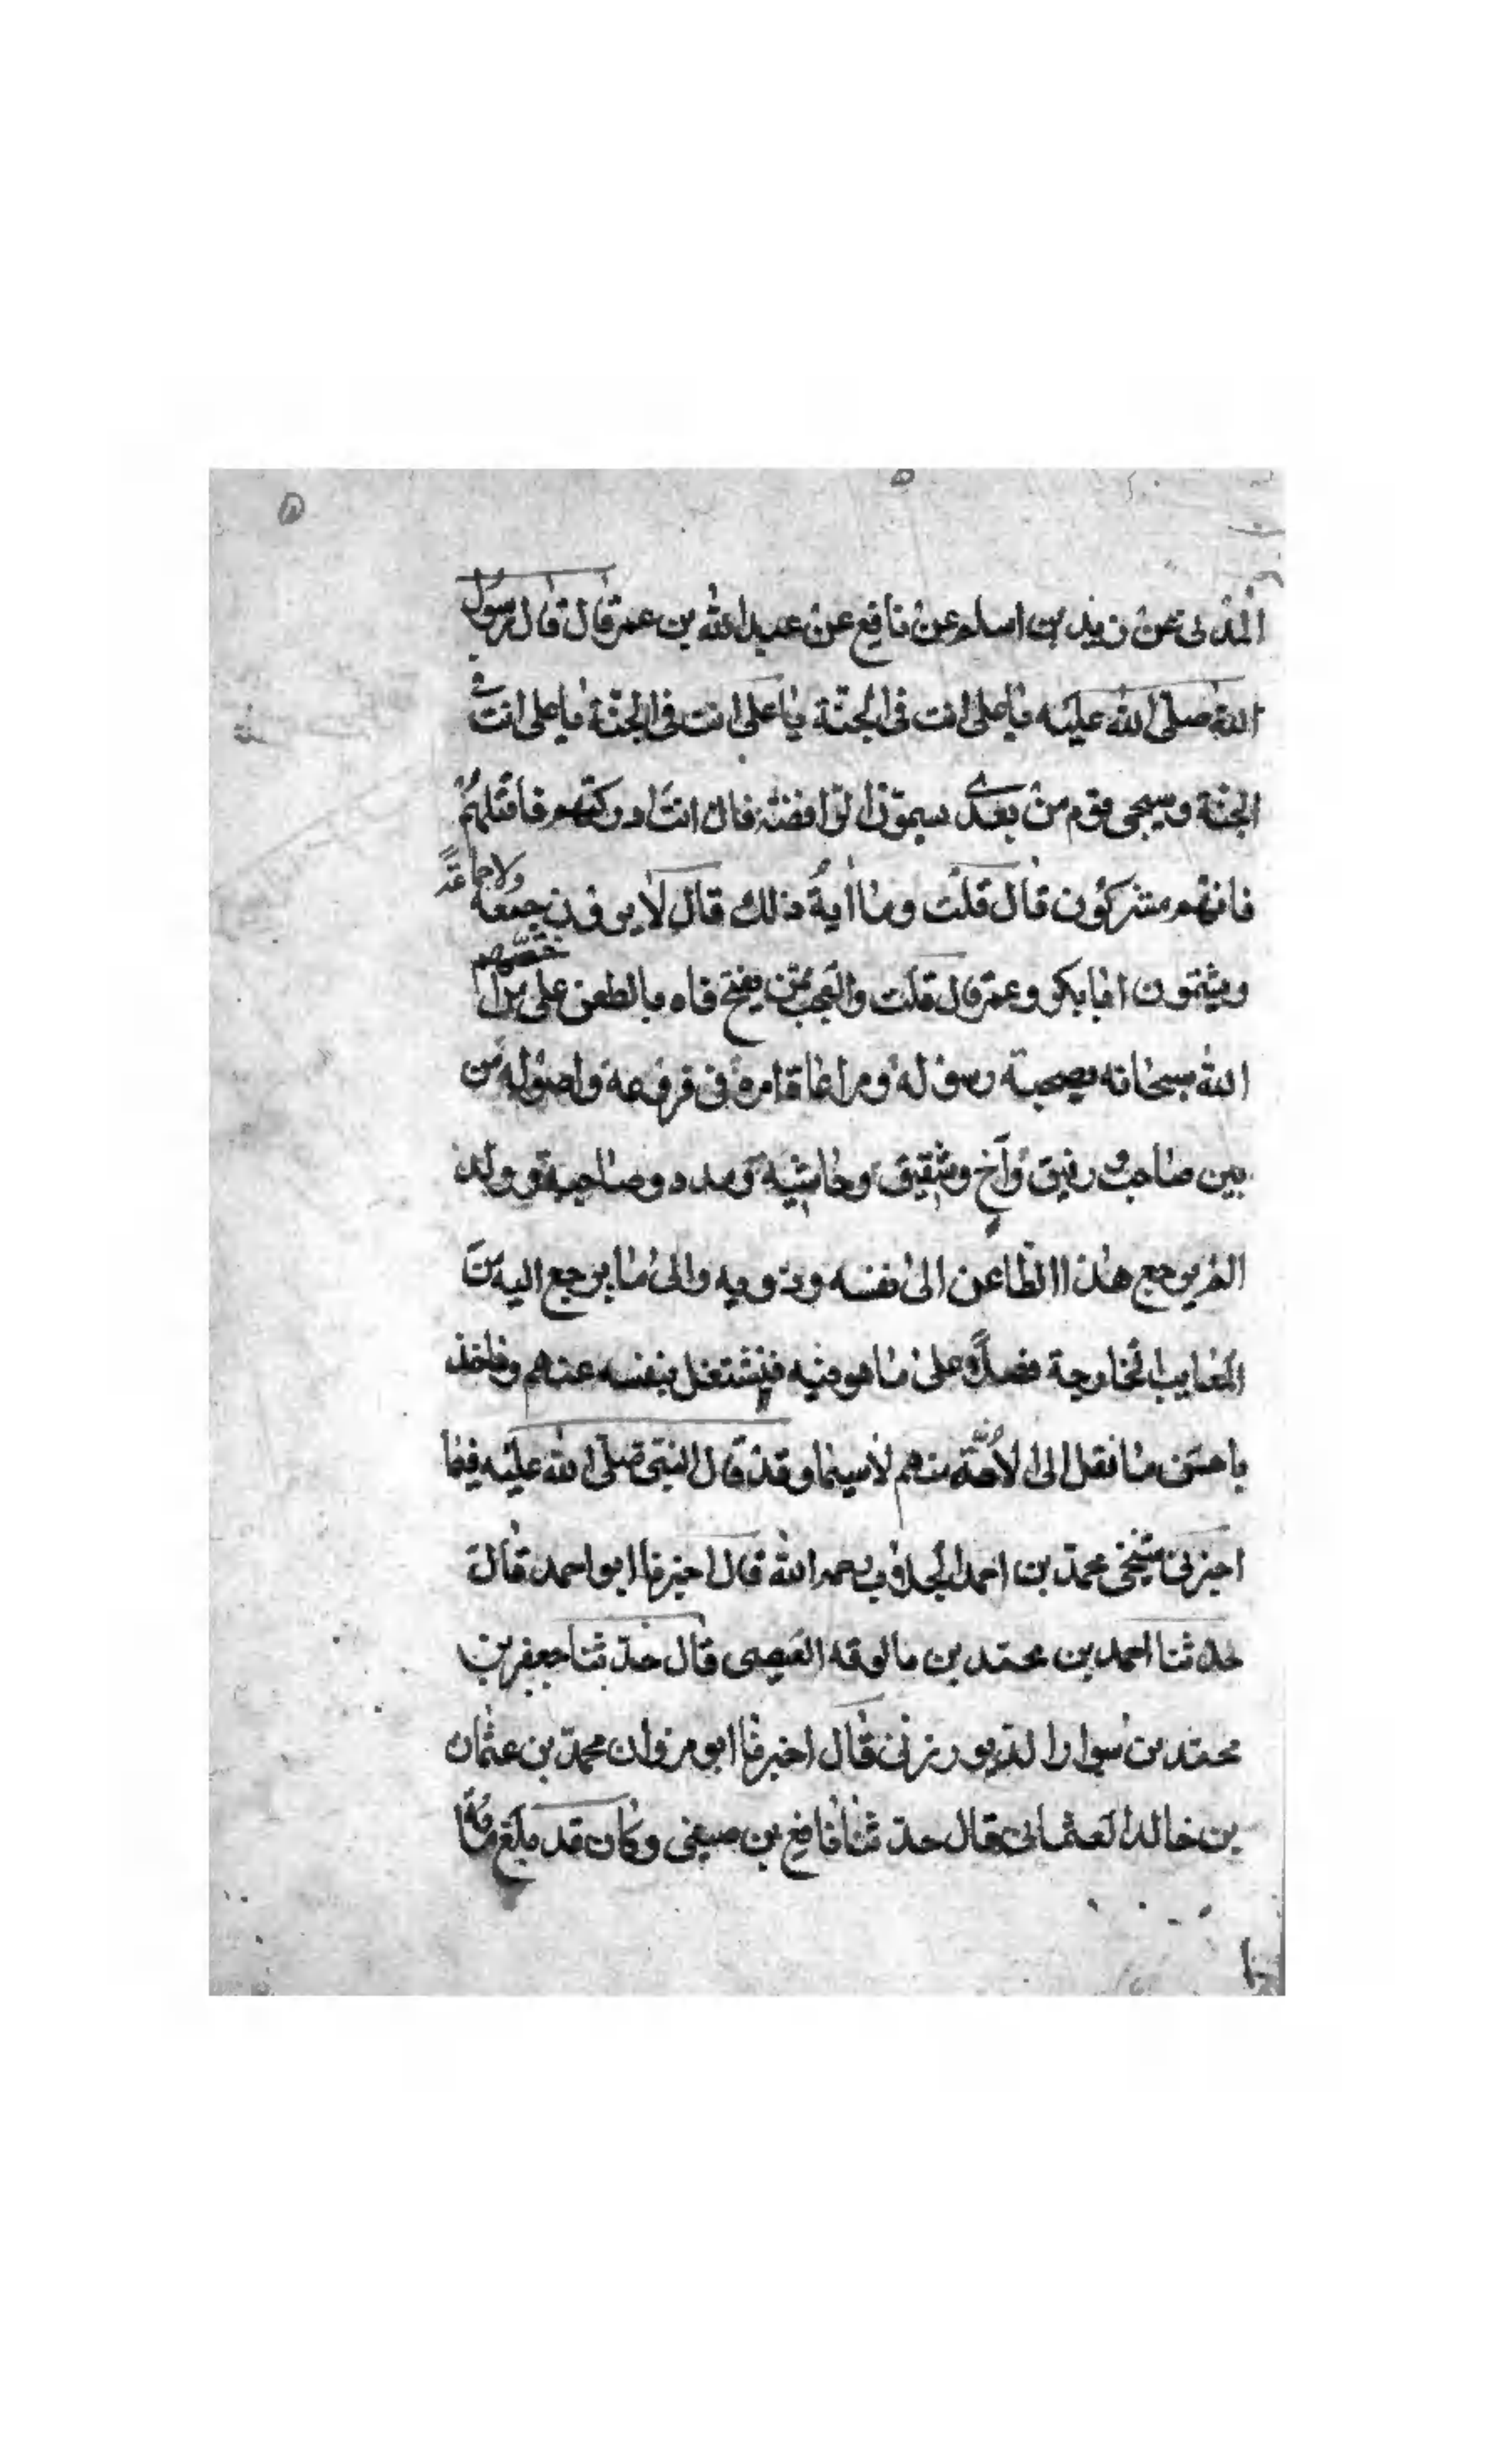 المدنى عن زيد بن اسلم عن نافع عن عبد الله بن عمر قال قال رسول
الله صلى الله عليه يا على انت فى الجنة يا على انت فى الجنة يا على انت فى
الجنة وسيجى قوم من بعدى يسمون الرافضة فان انت ادركتهم فاقتلهم
فانهم مشركون قال قلت وما اية ذلك قال لا يرون جمعة ولا جماعة
ويشتمون ابا بكر وعمر قال قلت والعجب ممن يفتح فاه بالطعن على من خصهم
الله سبحانه بصحبة رسوله ومراعاة امره فى فروعه واصوله من
بين صاحب ورفيق واخ وشقيق وحاشية ومدد وصاحبة وولد
الم يرجع هذا الطاعن الى نفسه وذويه والى ما يرجع اليه من
المعايب الخارجة فضلا على ما هو فيه فيشتغل بنفسه عنهم وياخذ
باحسن ما نقل الى الامة منهم لا سيما وقد قال النبى صلى الله عليه فيما
اخبرنى شيخى محمد بن احمد الجارودى رحمه الله قال اخبرنا ابو احمد قال
حدثنا احمد بن محمد بن مالويه قال حدثنا جعفر بن
محمد بن سوار قال اخبرنا ابو مروان محمد بن عثمان
بن خالد العثمانى قال حدثنا نافع بن صيفى وكان قد بلغ مائة